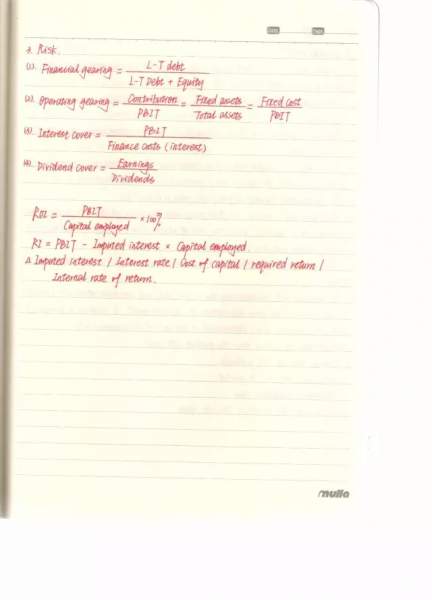 7. Risk.
(1). Financial gearing = L-T debt / L-T Debt + Equity
(2). Operating gearing = Contribution / PBIT = Fixed assets / Total assets = Fixed cost / PBIT
(3). Interest cover = PBIT / Finance costs (interest)
(4). Dividend cover = Earnings / Dividends
ROI = PBIT / Capital employed × 100%
RI = PBIT - Imputed interest × Capital employed.
Δ Imputed interest / Interest rate / Cost of capital / required return /
Internal rate of return.